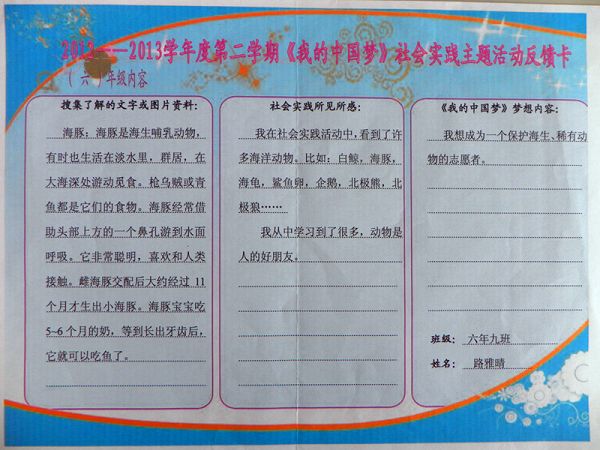 2012——2013学年度第二学期《我的中国梦》社会实践主题活动反馈卡
（ 六 ）年级内容
搜集了解的文字或图片资料：
海豚：海豚是海生哺乳动物，
有时也生活在淡水里，群居，在
大海深处游动觅食。枪乌贼或青
鱼都是它们的食物。海豚经常借
助头部上方的一个鼻孔游到水面
呼吸。它非常聪明，喜欢和人类
接触。雌海豚交配后大约经过 11
个月才生出小海豚。海豚宝宝吃
5~6 个月的奶，等到长出牙齿后，
它就可以吃鱼了。
社会实践所见所感：
我在社会实践活动中，看到了许
多海洋动物。比如：白鲸，海豚，
海龟，鲨鱼卵，企鹅，北极熊，北
极狼……
我从中学习到了很多，动物是
人的好朋友。
《我的中国梦》梦想内容：
我想成为一个保护海生、稀有动
物的志愿者。
班级： 六年九班
姓名： 路雅晴